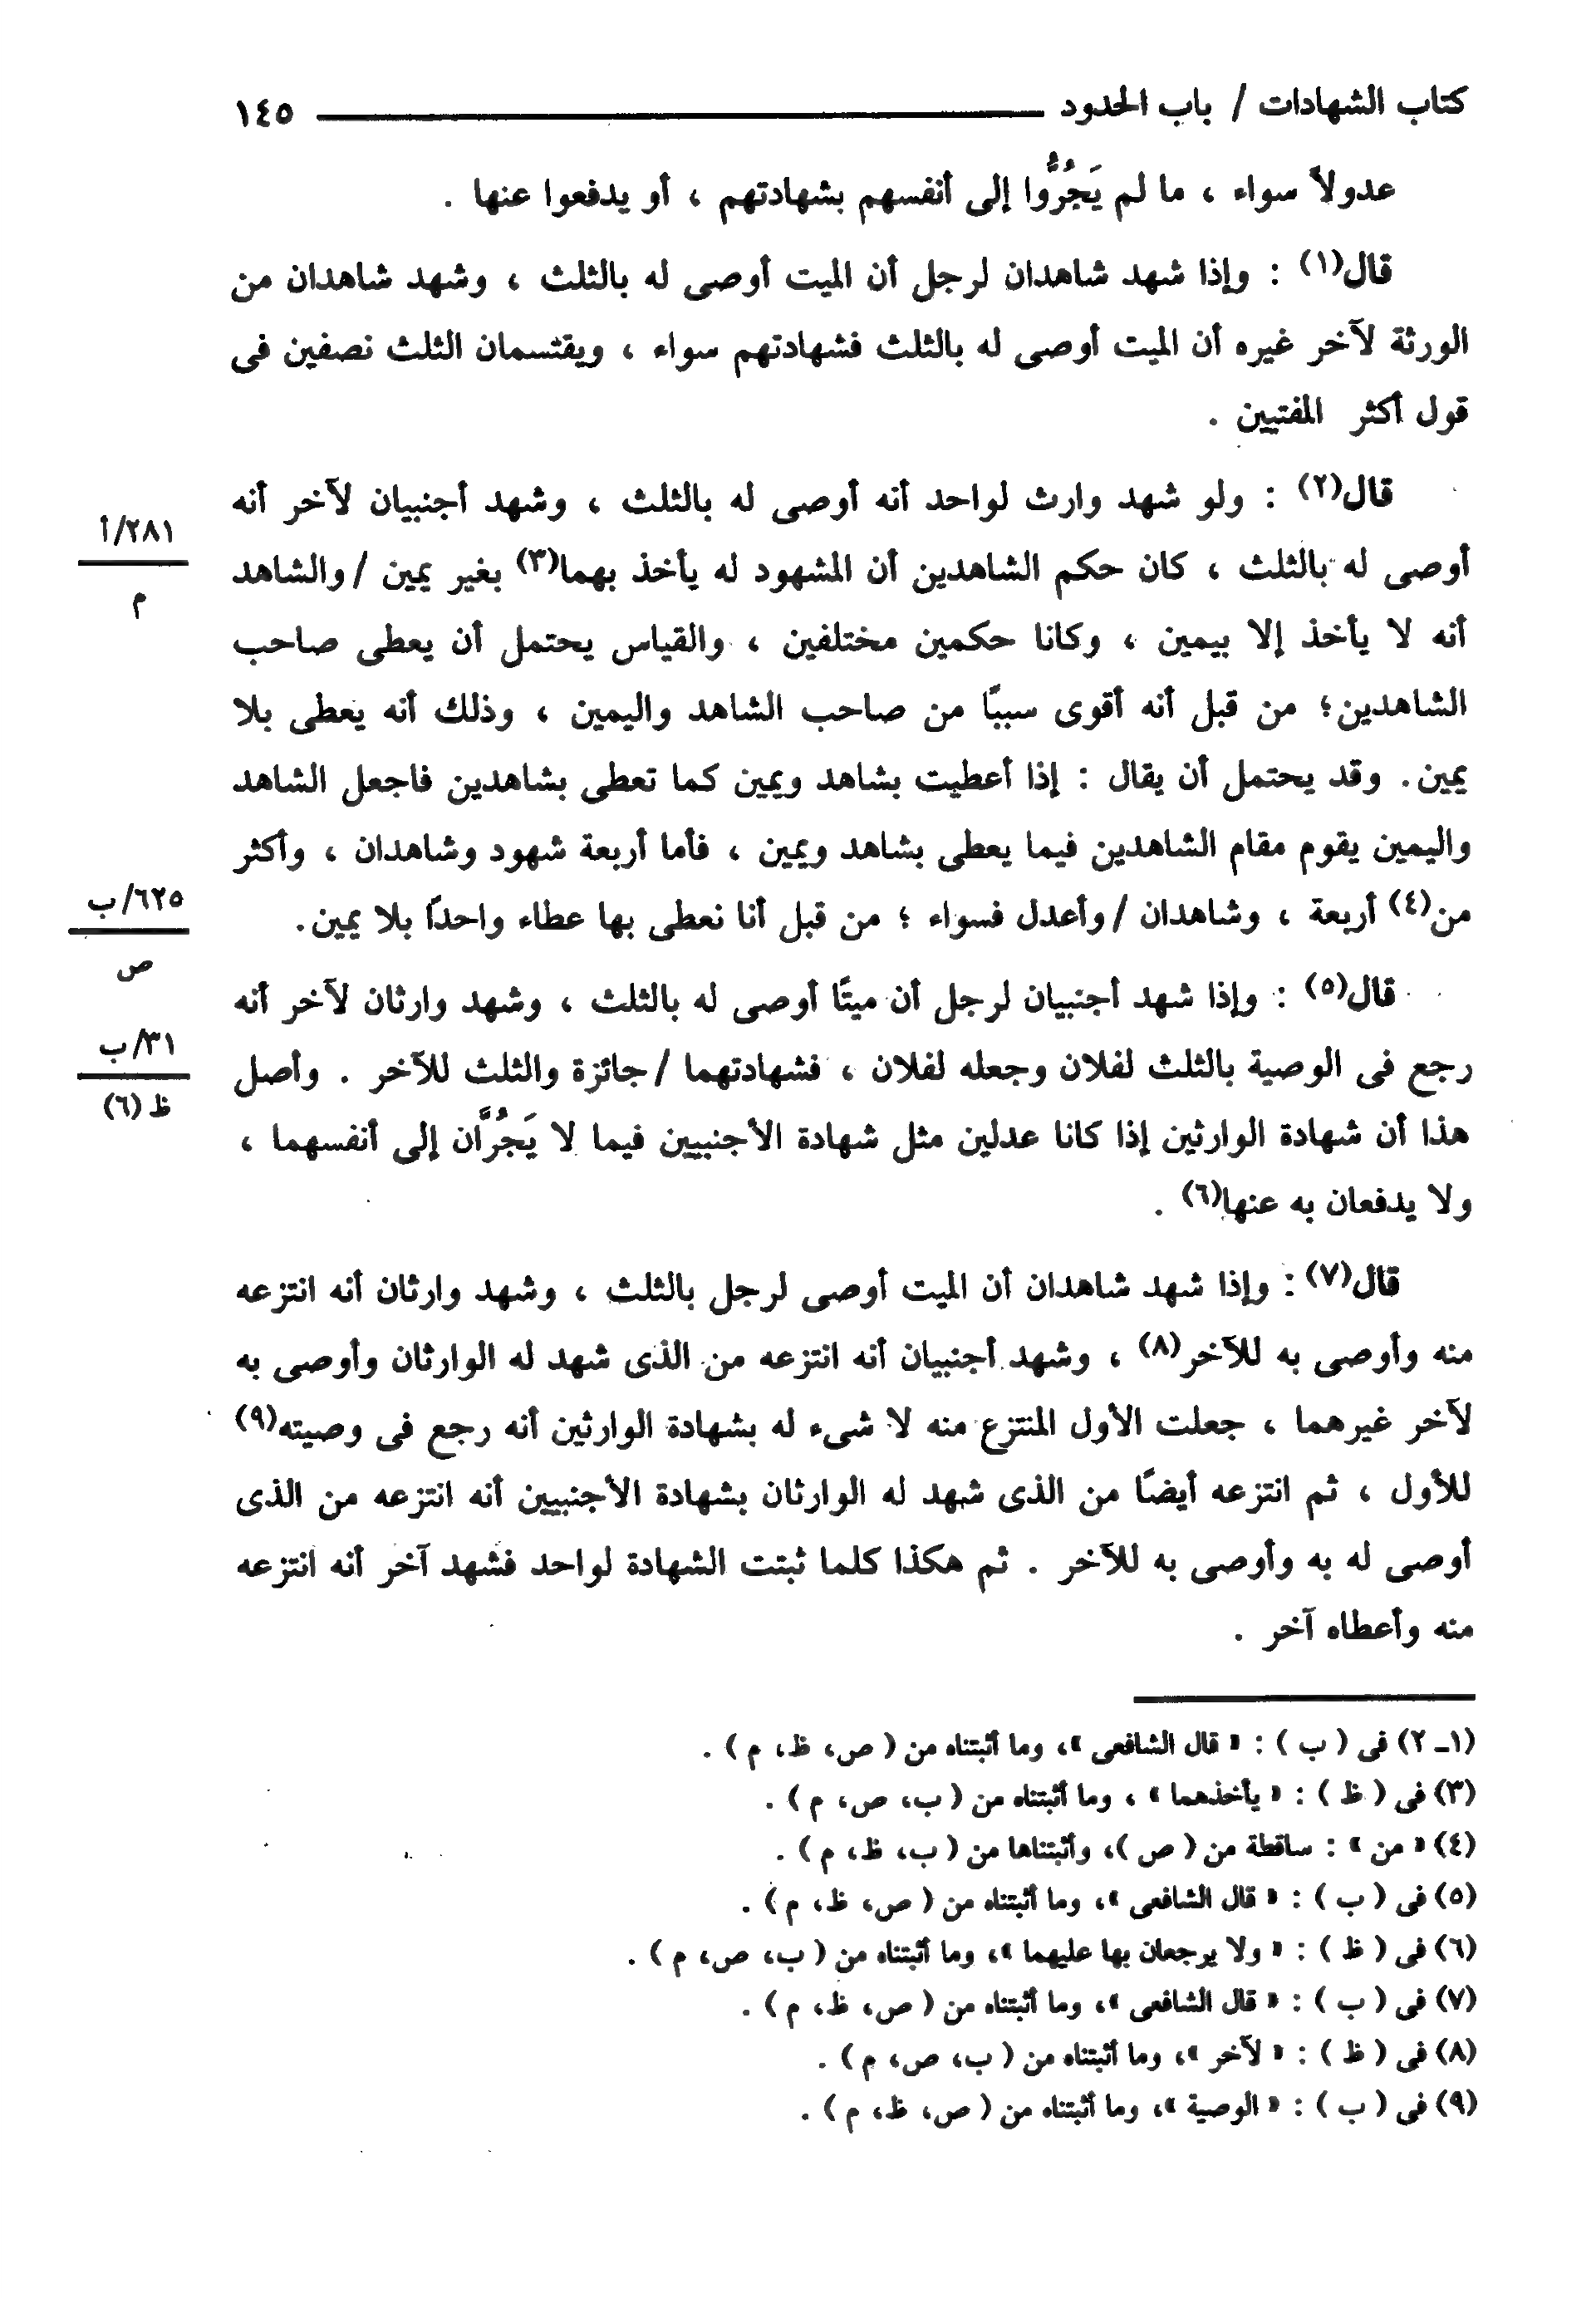 كتاب الشهادات / باب الحدود ــــــــــــــــــــ ١٤٥
عدولاً سواء ، ما لم يَجُرُّوا إلى أنفسهم بشهادتهم ، أو يدفعوا عنها .
قال(١) : وإذا شهد شاهدان لرجل أن الميت أوصى له بالثلث ، وشهد شاهدان من
الورثة لآخر غيره أن الميت أوصى له بالثلث فشهادتهم سواء ، ويقتسمان الثلث نصفين فى
قول أكثر المفتيين .
قال(٢) : ولو شهد وارث لواحد أنه أوصى له بالثلث ، وشهد أجنبيان لآخر أنه
أوصى له بالثلث ، كان حكم الشاهدين أن المشهود له يأخذ بهما(٣) بغير يمين /والشاهد
٢٨١/أ
م
أنه لا يأخذ إلا بيمين ، وكانا حكمين مختلفين ، والقياس يحتمل أن يعطى صاحب
الشاهدين؛ من قبل أنه أقوى سببًا من صاحب الشاهد واليمين ، وذلك أنه يعطى بلا
يمين. وقد يحتمل أن يقال : إذا أعطيت بشاهد ويمين كما تعطى بشاهدين فاجعل الشاهد
واليمين يقوم مقام الشاهدين فيما يعطى بشاهد ويمين ، فأما أربعة شهود وشاهدان ، وأكثر
من(٤) أربعة ، وشاهدان /وأعدل فسواء ؛ من قبل أنا نعطى بها عطاء واحدًا بلا يمين.
٦٢٥/ب
ص
قال(٥) : وإذا شهد أجنبيان لرجل أن ميتًا أوصى له بالثلث ، وشهد وارثان لآخر أنه
رجع فى الوصية بالثلث لفلان وجعله لفلان ، فشهادتهما /جائزة والثلث للآخر . وأصل
٣١/ب
ظ (٦)
هذا أن شهادة الوارثين إذا كانا عدلين مثل شهادة الأجنبيين فيما لا يَجُرَّان إلى أنفسهما ،
ولا يدفعان به عنها(٦) .
قال(٧) : وإذا شهد شاهدان أن الميت أوصى لرجل بالثلث ، وشهد وارثان أنه انتزعه
منه وأوصى به للآخر(٨) ، وشهد أجنبيان أنه انتزعه من الذى شهد له الوارثان وأوصى به
لآخر غيرهما ، جعلت الأول المنتزع منه لا شىء له بشهادة الوارثين أنه رجع فى وصيته(٩)
للأول ، ثم انتزعه أيضًا من الذى شهد له الوارثان بشهادة الأجنبيين أنه انتزعه من الذى
أوصى له به وأوصى به للآخر . ثم هكذا كلما ثبتت الشهادة لواحد فشهد آخر أنه انتزعه
منه وأعطاه آخر .
(١ـ ٢) فى ( ب ) : « قال الشافعى »، وما أثبتناه من ( ص، ظ، م ) .
(٣) فى ( ظ ) : « يأخذهما » ، وما أثبتناه من ( ب، ص، م ) .
(٤) « من » : ساقطة من ( ص )، وأثبتناها من ( ب، ظ، م ) .
(٥) فى ( ب ) : « قال الشافعى »، وما أثبتناه من ( ص، ظ، م ) .
(٦) فى ( ظ ) : « ولا يرجعان بها عليهما »، وما أثبتناه من ( ب، ص، م ) .
(٧) فى ( ب ) : « قال الشافعى »، وما أثبتناه من ( ص، ظ، م ) .
(٨) فى ( ظ ) : « لآخر »، وما أثبتناه من ( ب، ص، م ) .
(٩) فى ( ب ) : « الوصية »، وما أثبتناه من ( ص، ظ، م ) .